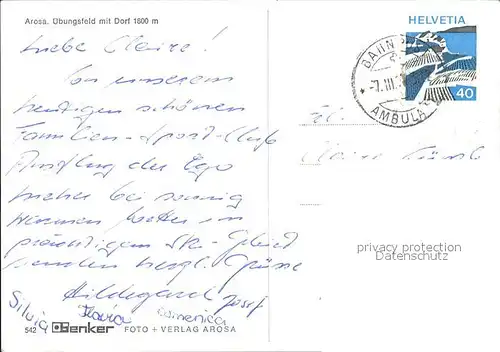 Arosa. Übungsfeld mit Dorf 1800 m
HELVETIA
40
BAHN
-7.III.
AMBULA
Liebe Claire!
In unserem
heutigen schönen
Familien-Sport-Club
Ausflug der
bei sonnig
warmem Wetter im
prächtigen Ski-Gebiet
senden herzl. Grüsse
Hildegard Josef
Silvia
Frl.
Claire
privacy protection
Datenschutz
542 Benker FOTO + VERLAG AROSA